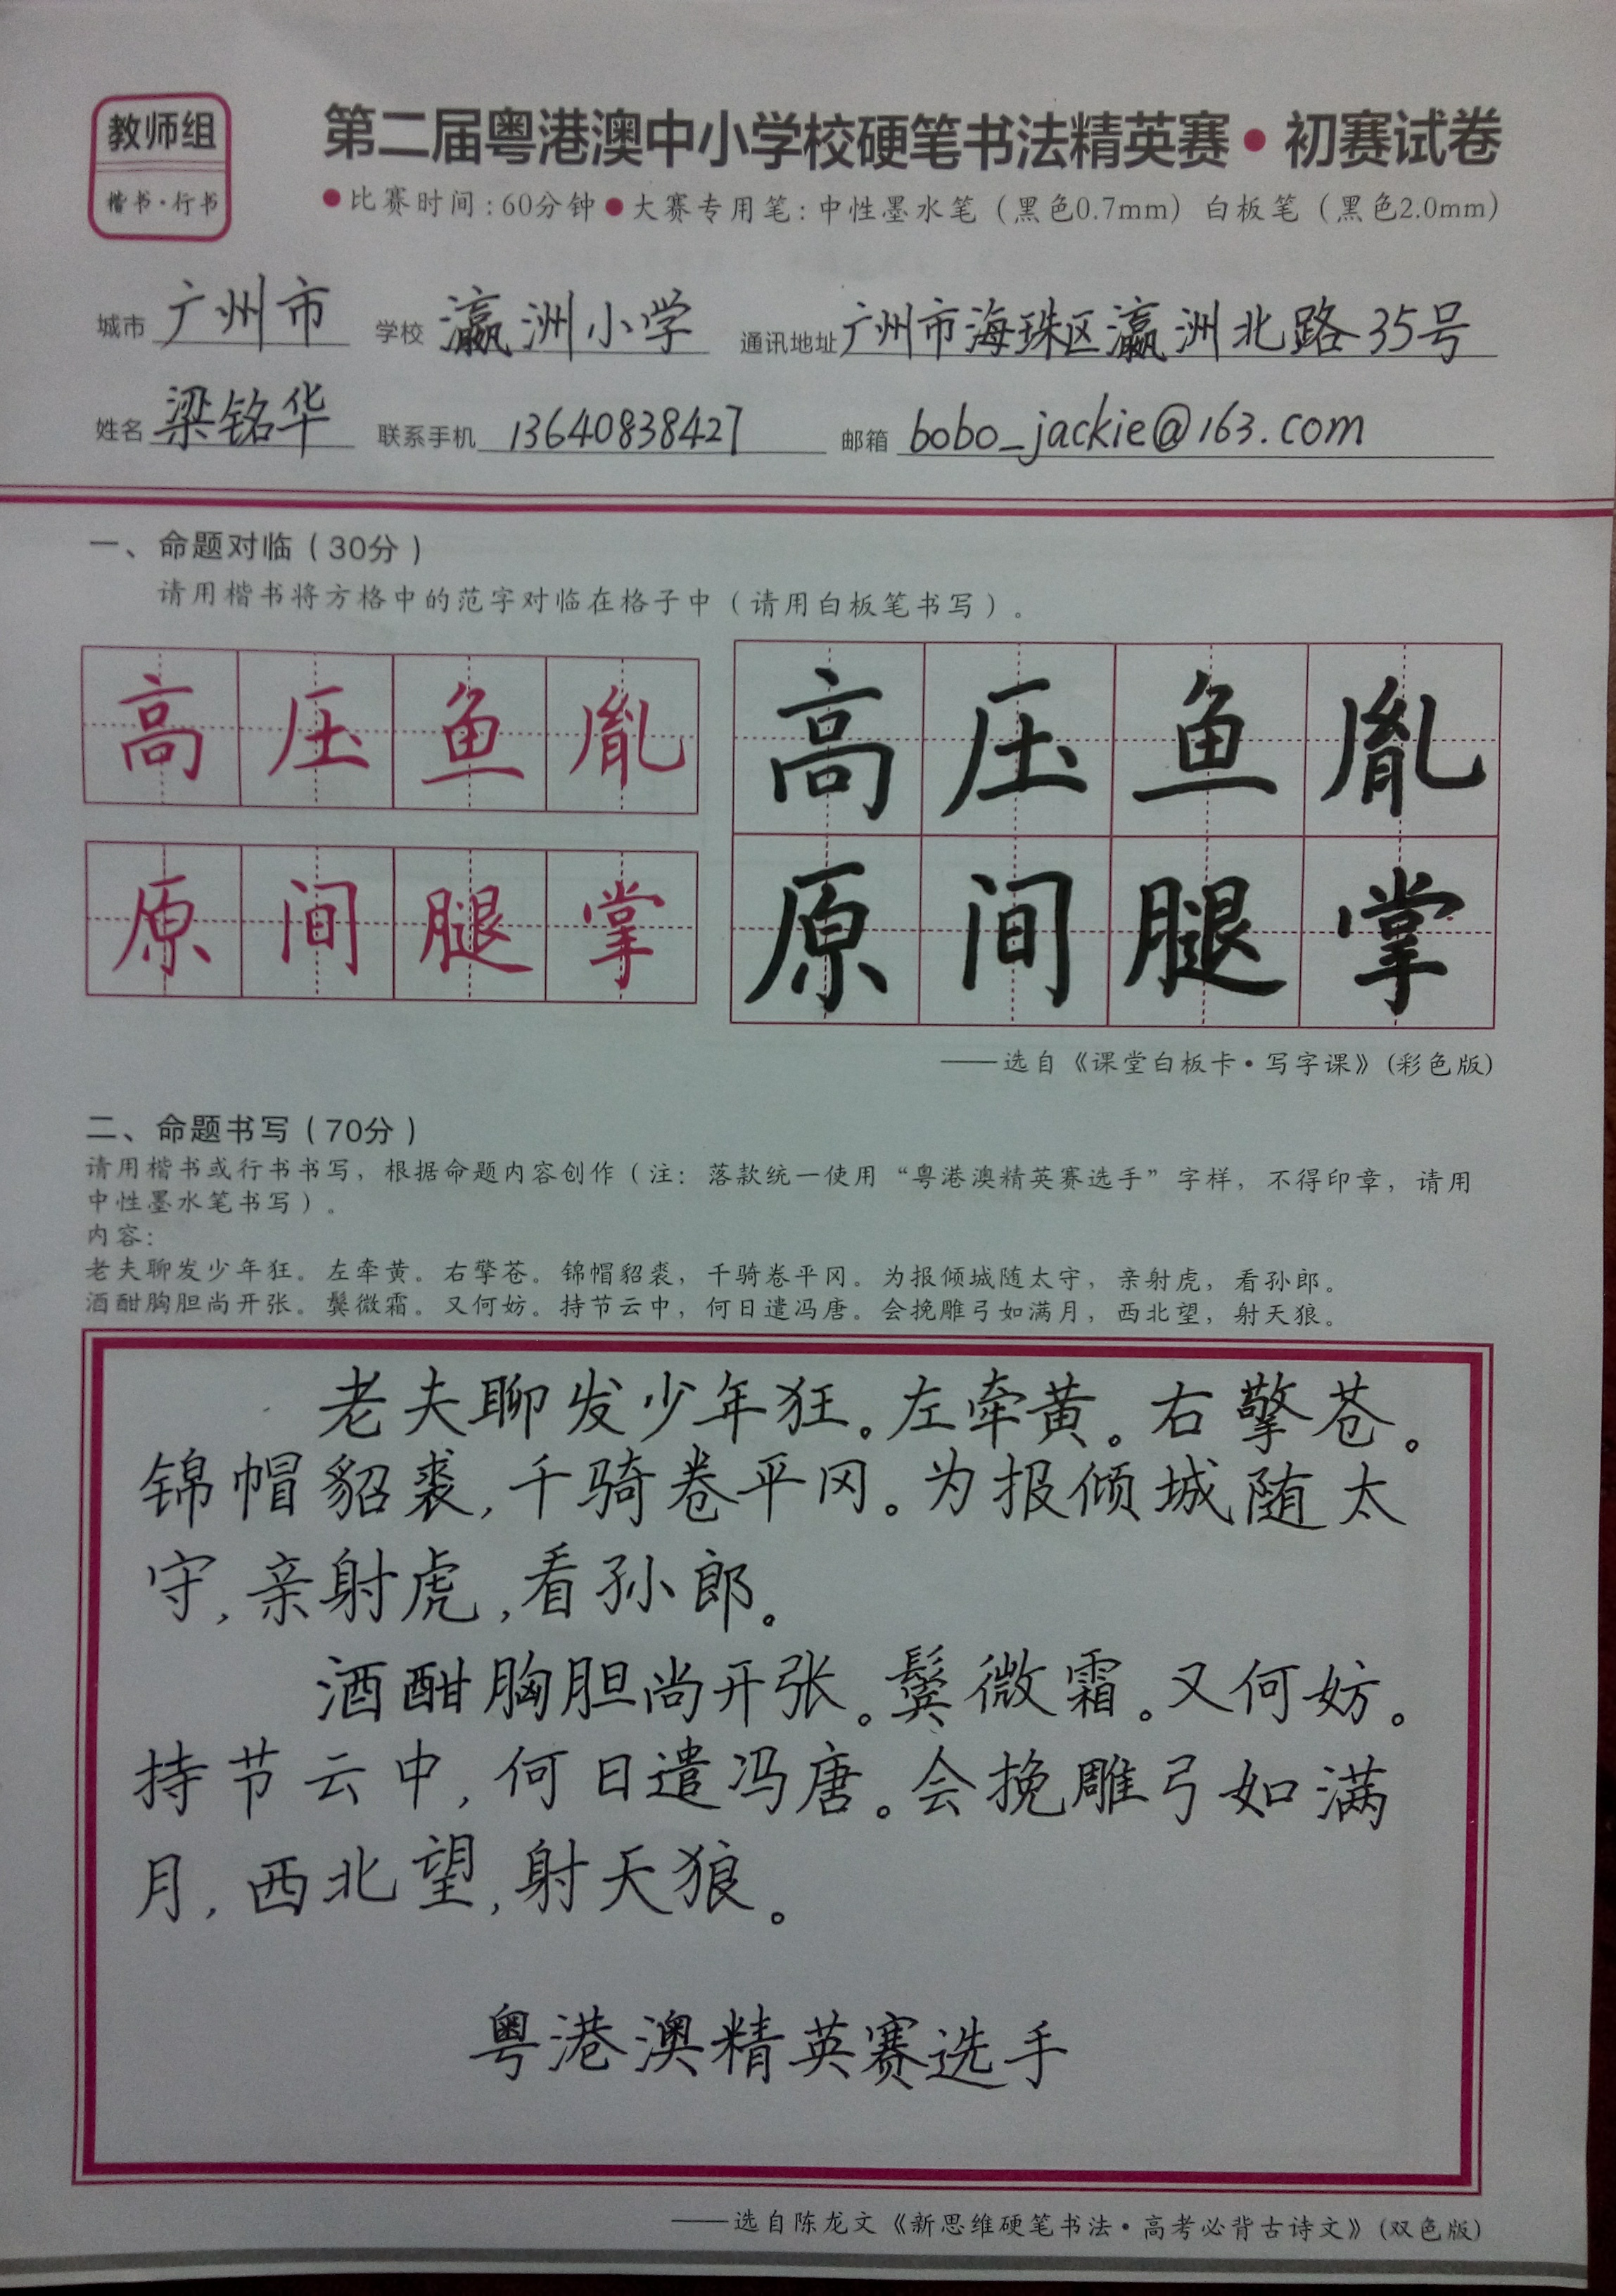 教师组
楷书·行书
第二届粤港澳中小学校硬笔书法精英赛·初赛试卷
●比赛时间：60分钟●大赛专用笔：中性墨水笔（黑色0.7mm）白板笔（黑色2.0mm）
城市 广州市 学校 瀛洲小学 通讯地址 广州市海珠区瀛洲北路35号
姓名 梁铭华 联系手机 13640838427 邮箱 bobo_jackie@163.com
一、命题对临（30分）
请用楷书将方格中的范字对临在格子中（请用白板笔书写）。
高压鱼胤 高压鱼胤
原间腿掌 原间腿掌
——选自《课堂白板卡·写字课》(彩色版)
二、命题书写（70分）
请用楷书或行书书写，根据命题内容创作（注：落款统一使用“粤港澳精英赛选手”字样，不得印章，请用
中性墨水笔书写）。
内容：
老夫聊发少年狂。左牵黄。右擎苍。锦帽貂裘，千骑卷平冈。为报倾城随太守，亲射虎，看孙郎。
酒酣胸胆尚开张。鬓微霜。又何妨。持节云中，何日遣冯唐。会挽雕弓如满月，西北望，射天狼。
老夫聊发少年狂。左牵黄。右擎苍。
锦帽貂裘，千骑卷平冈。为报倾城随太
守，亲射虎，看孙郎。
酒酣胸胆尚开张。鬓微霜。又何妨。
持节云中，何日遣冯唐。会挽雕弓如满
月，西北望，射天狼。
粤港澳精英赛选手
——选自陈龙文《新思维硬笔书法·高考必背古诗文》(双色版)